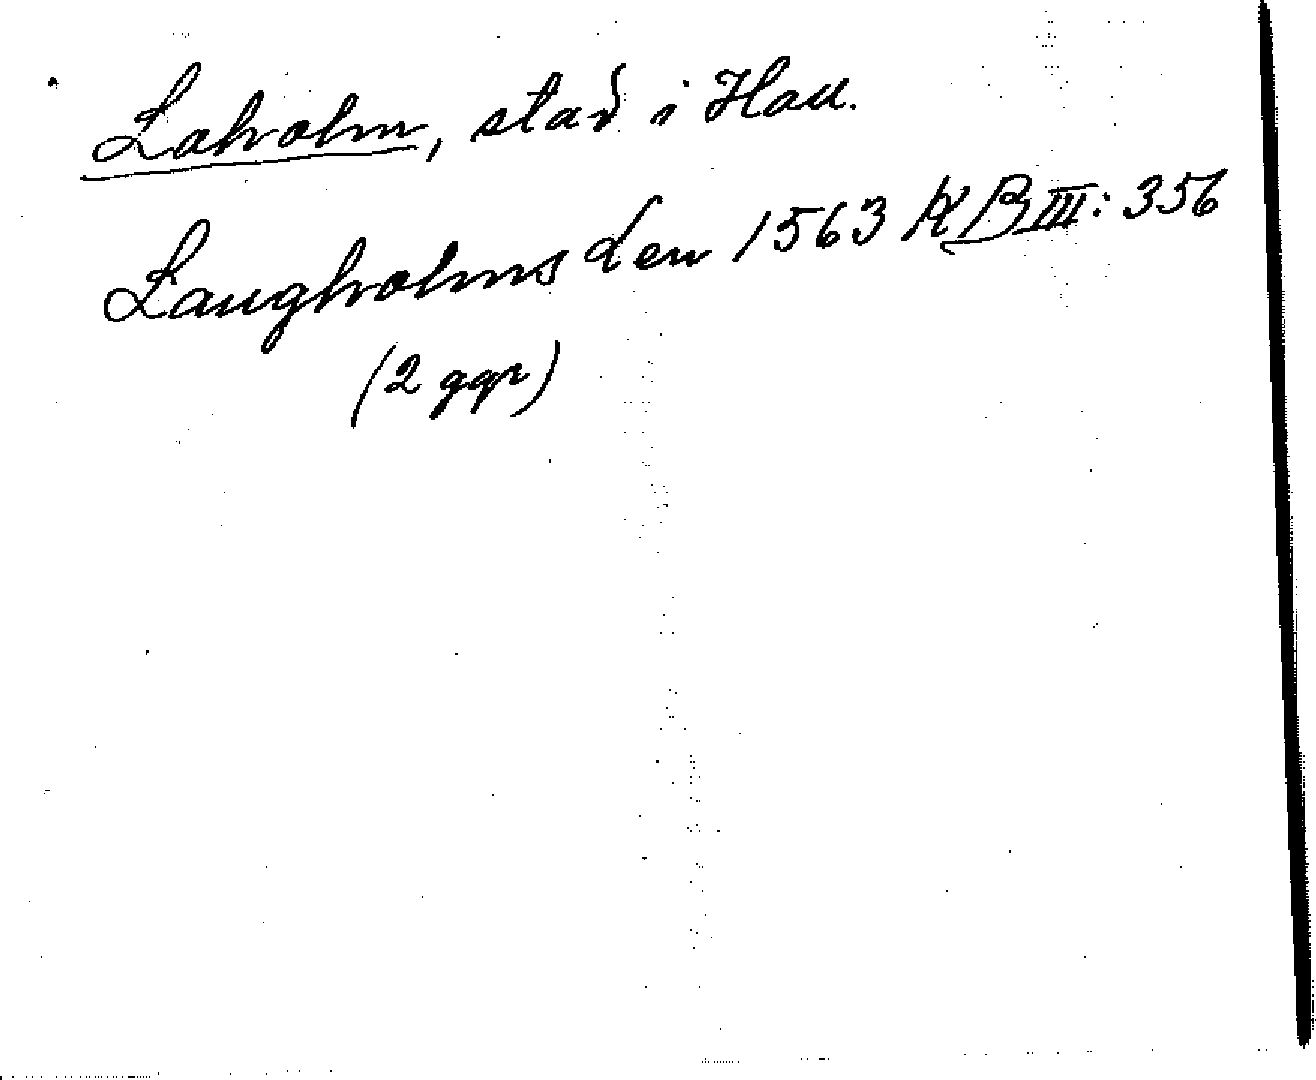 Laholm, stad i Hall.
Laugholms den 1563 KB III: 356
(2 ggr)